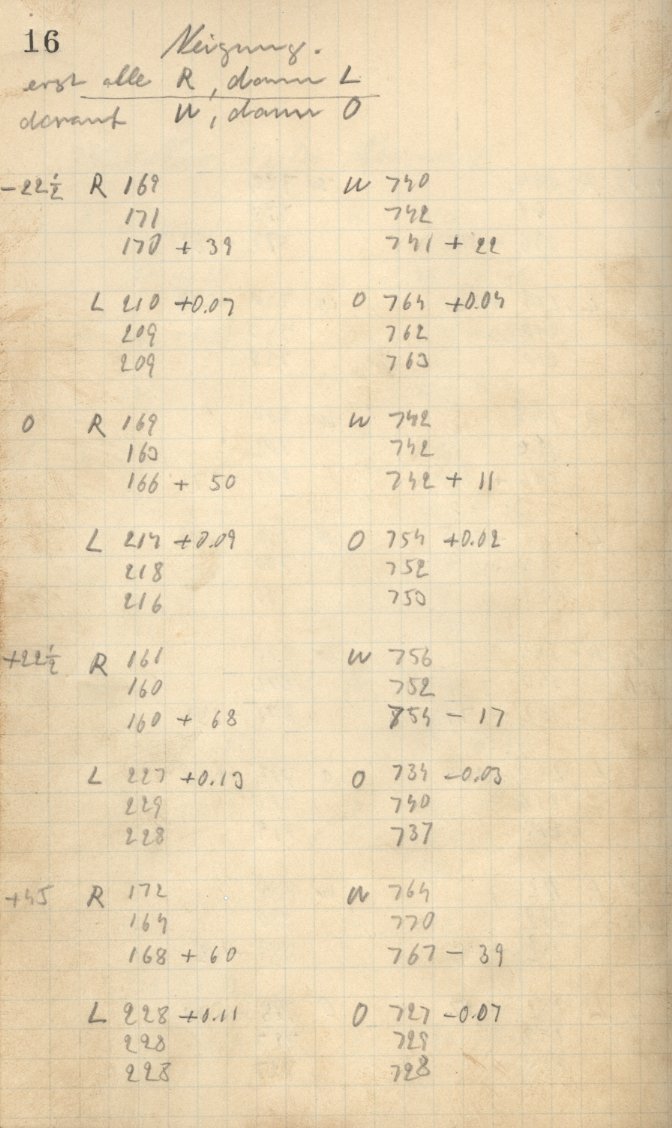 16 Neigung.
erst alle R, dann L
darauf W, dann O
-22½ R 169 W 740
171 742
170 + 39 741 + 22
L 210 +0.07 O 764 +0.04
209 762
209 763
0 R 169 W 742
163 742
166 + 50 742 + 11
L 214 +0.09 O 754 +0.02
218 752
216 753
+22½ R 161 W 756
160 752
160 + 68 754 - 17
L 227 +0.13 O 734 -0.03
229 740
228 737
+45 R 172 W 764
164 770
168 + 60 767 - 39
L 228 +0.11 O 727 -0.07
228 729
228 728